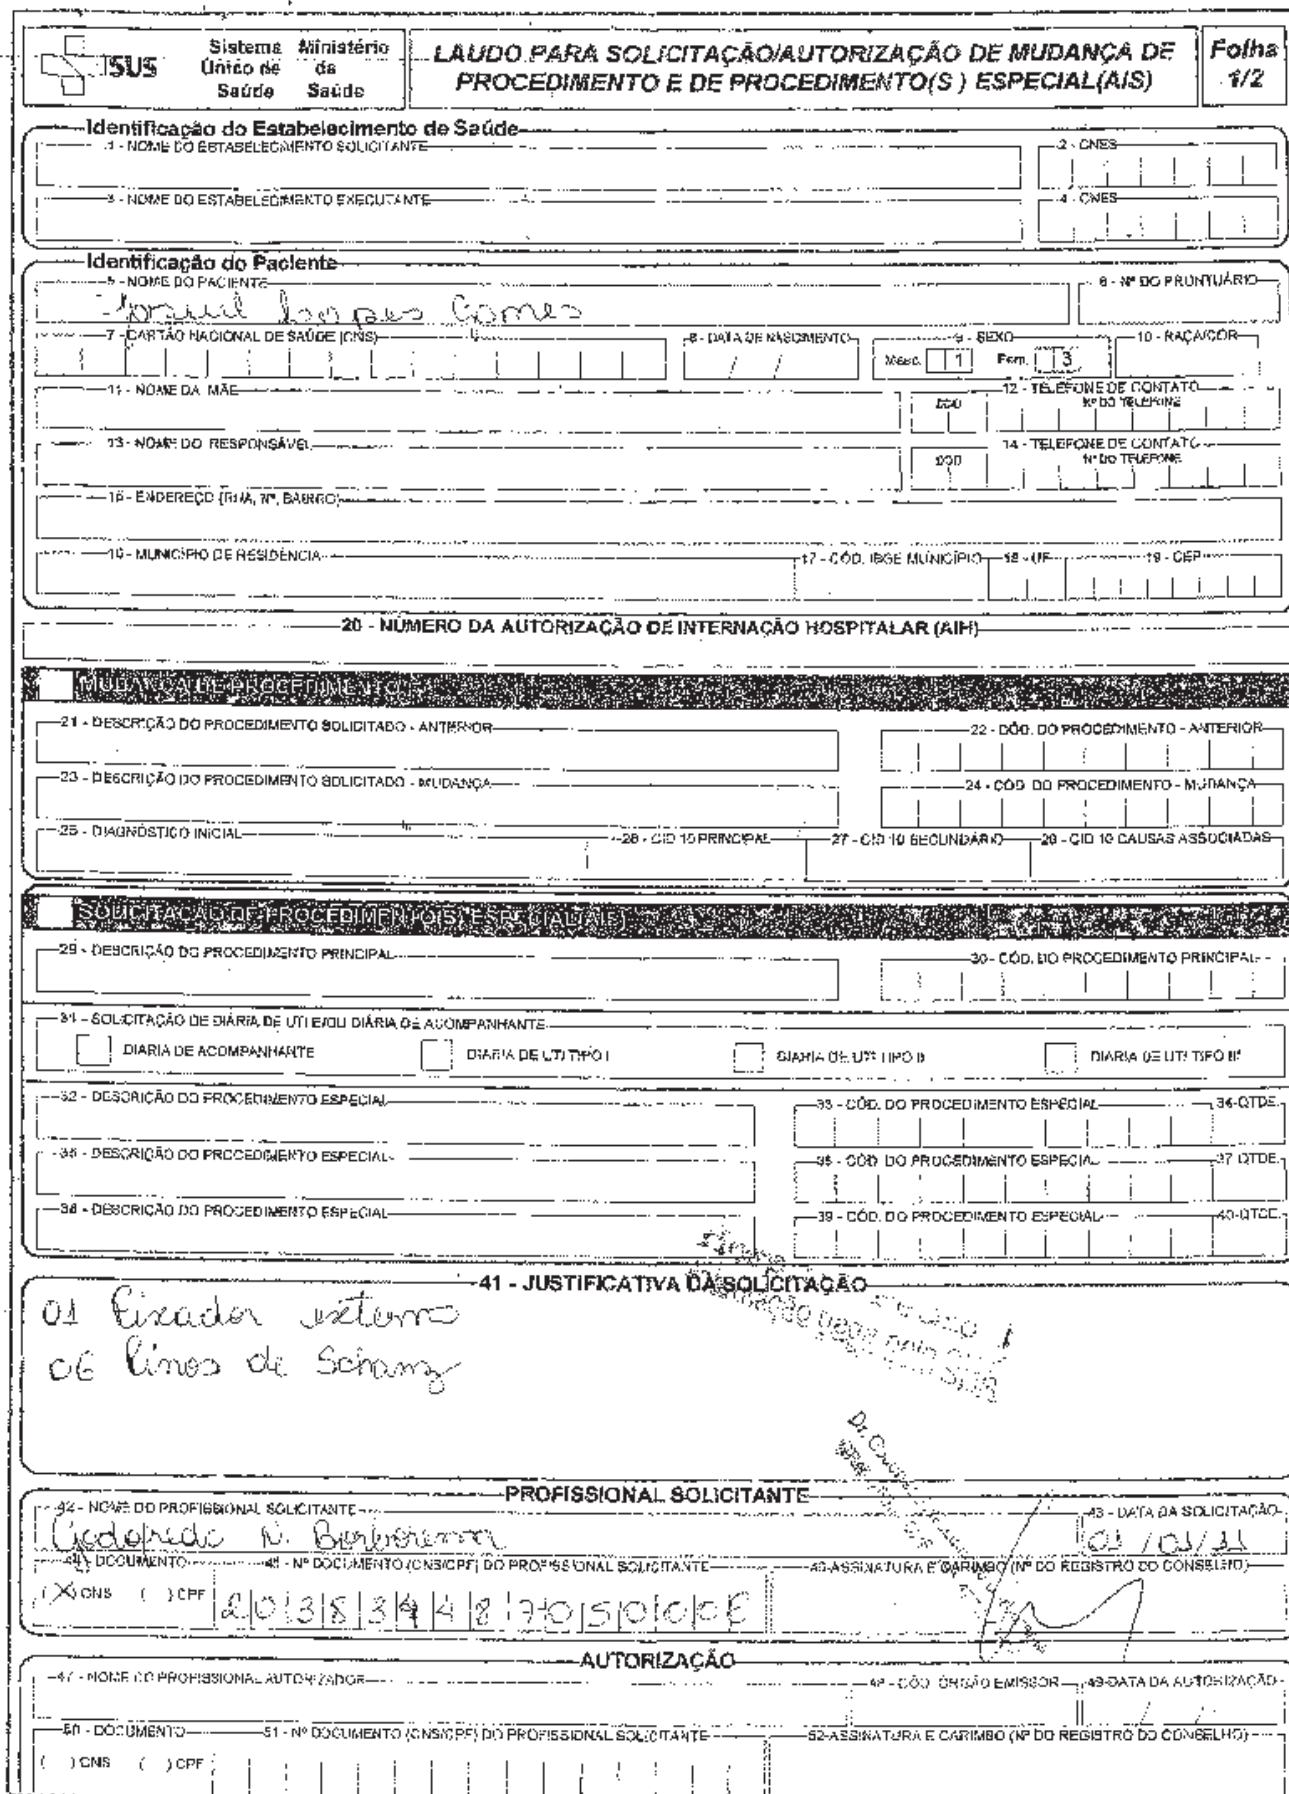 SUS
Sistema Único de Saúde
Ministério da Saúde
LAUDO PARA SOLICITAÇÃO/AUTORIZAÇÃO DE MUDANÇA DE PROCEDIMENTO E DE PROCEDIMENTO(S) ESPECIAL(AIS)
Folha 1/2
Identificação do Estabelecimento de Saúde
1 - NOME DO ESTABELECIMENTO SOLICITANTE
2 - CNES
3 - NOME DO ESTABELECIMENTO EXECUTANTE
4 - CNES
Identificação do Paciente
5 - NOME DO PACIENTE
6 - Nº DO PRONTUÁRIO
Lopes Gomes
7 - CARTÃO NACIONAL DE SAÚDE (CNS)
8 - DATA DE NASCIMENTO
9 - SEXO
10 - RAÇA/COR
/ /
Masc. 1 Fem. 3
11 - NOME DA MÃE
12 - TELEFONE DE CONTATO
DDD Nº DO TELEFONE
13 - NOME DO RESPONSÁVEL
14 - TELEFONE DE CONTATO
DDD Nº DO TELEFONE
15 - ENDEREÇO (RUA, Nº, BAIRRO)
16 - MUNICÍPIO DE RESIDÊNCIA
17 - CÓD. IBGE MUNICÍPIO
18 - UF
19 - CEP
20 - NÚMERO DA AUTORIZAÇÃO DE INTERNAÇÃO HOSPITALAR (AIH)
MUDANÇA DE PROCEDIMENTO
21 - DESCRIÇÃO DO PROCEDIMENTO SOLICITADO - ANTERIOR
22 - CÓD. DO PROCEDIMENTO - ANTERIOR
23 - DESCRIÇÃO DO PROCEDIMENTO SOLICITADO - MUDANÇA
24 - CÓD. DO PROCEDIMENTO - MUDANÇA
25 - DIAGNÓSTICO INICIAL
26 - CID 10 PRINCIPAL
27 - CID 10 SECUNDÁRIO
28 - CID 10 CAUSAS ASSOCIADAS
SOLICITAÇÃO DE PROCEDIMENTO(S) ESPECIAL(AIS)
29 - DESCRIÇÃO DO PROCEDIMENTO PRINCIPAL
30 - CÓD. DO PROCEDIMENTO PRINCIPAL
31 - SOLICITAÇÃO DE DIÁRIA DE UTI E/OU DIÁRIA DE ACOMPANHANTE
DIARIA DE ACOMPANHANTE
DIARIA DE UTI TIPO I
DIARIA DE UTI TIPO II
DIARIA DE UTI TIPO III
32 - DESCRIÇÃO DO PROCEDIMENTO ESPECIAL
33 - CÓD. DO PROCEDIMENTO ESPECIAL
34-QTDE.
35 - DESCRIÇÃO DO PROCEDIMENTO ESPECIAL
36 - CÓD. DO PROCEDIMENTO ESPECIAL
37 QTDE.
38 - DESCRIÇÃO DO PROCEDIMENTO ESPECIAL
39 - CÓD. DO PROCEDIMENTO ESPECIAL
40-QTDE.
41 - JUSTIFICATIVA DA SOLICITAÇÃO
01 Fixador externo
06 Pinos de Schanz
PROFISSIONAL SOLICITANTE
42 - NOME DO PROFISSIONAL SOLICITANTE
43 - DATA DA SOLICITAÇÃO
Godofredo N. Borborema
01/01/11
44 - DOCUMENTO
45 - Nº DOCUMENTO (CNS/CPF) DO PROFISSIONAL SOLICITANTE
46-ASSINATURA E CARIMBO (Nº DO REGISTRO DO CONSELHO)
(X) CNS ( ) CPF
AUTORIZAÇÃO
47 - NOME DO PROFISSIONAL AUTORIZADOR
48 - CÓD. ÓRGÃO EMISSOR
49-DATA DA AUTORIZAÇÃO
/ /
50 - DOCUMENTO
51 - Nº DOCUMENTO (CNS/CPF) DO PROFISSIONAL SOLICITANTE
52-ASSINATURA E CARIMBO (Nº DO REGISTRO DO CONSELHO)
( ) CNS ( ) CPF